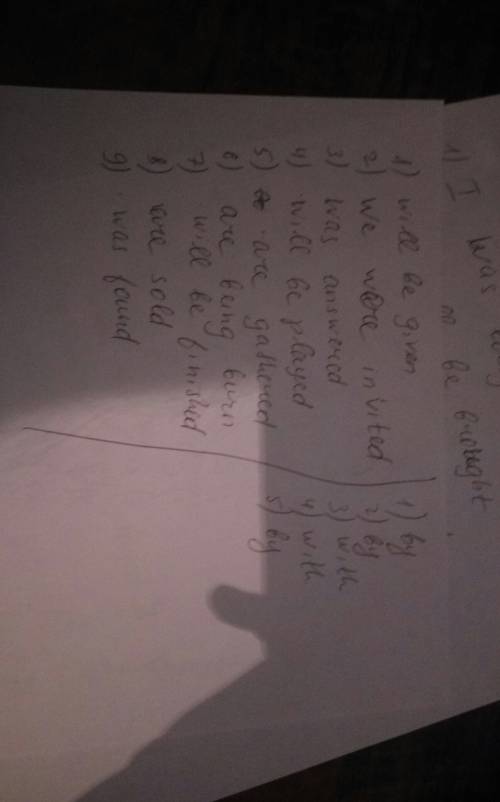 1) I was
be brought.
1) will be given
2) we were invited
3) was answered
4) will be played
5) are gathered
6) are being burn
7) will be finished
8) are sold
9) was found
1) by
2) by
3) with
4) with
5) by